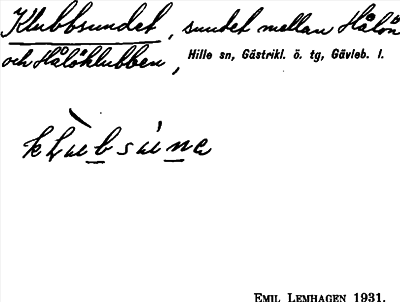 Klubbsundet, sundet mellan Hålön
och Hålöklubben, Hille sn, Gästrikl. ö. tg, Gävleb. l.
EMIL LEMHAGEN 1931.